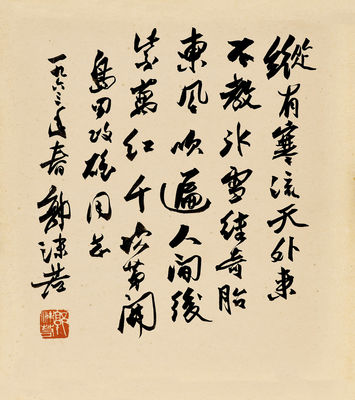 縱有寒流天外來
不教冰雪結奇胎
東風吹遍人間後
紫萬紅千次第開
島田政雄同志
一九六三年春 郭沫若